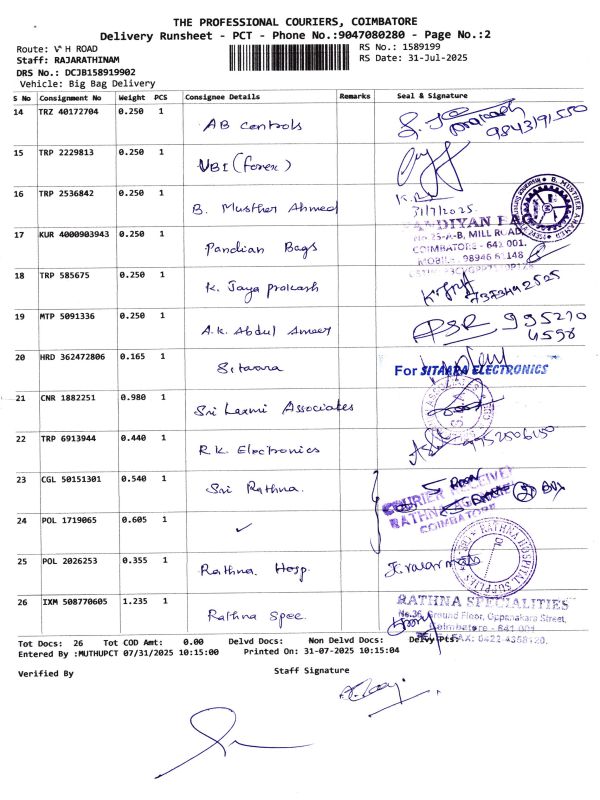 THE PROFESSIONAL COURIERS, COIMBATORE
Delivery Runsheet - PCT - Phone No.:9047080280 - Page No.:2
Route: V H ROAD
RS No.: 1589199
Staff: RAJARATHINAM
RS Date: 31-Jul-2025
DRS No.: DCJB158919902
Vehicle: Big Bag Delivery
S No Consignment No Weight PCS Consignee Details Remarks Seal & Signature
14 TRZ 40172704 0.250 1 AB controls
9843191550
15 TRP 2229813 0.250 1 UBI (forex)
16 TRP 2536842 0.250 1 B. Musther Ahmed
31/7/2025
17 KUR 4000903943 0.250 1 Pandian Bags
MILL ROAD,
COIMBATORE - 641 001.
18 TRP 585675 0.250 1 K. Jaya prakash
7373492525
19 MTP 5091336 0.250 1 A.K. Abdul Ameer
995270
4598
20 HRD 362472806 0.165 1 Sitaara
For SITAARA ELECTRONICS
21 CNR 1882251 0.980 1 Sri Laxmi Associates
22 TRP 6913944 0.440 1 R.K. Electronics
9952506150
23 CGL 50151301 0.540 1 Sri Rathna.
COURIER RECEIVED
COIMBATORE
24 POL 1719065 0.605 1 ✓
25 POL 2026253 0.355 1 Rathna. Hosp.
RATHNA HOSPITAL
SUPPLIES
26 IXM 508770605 1.235 1 Rathna Spec.
RATHNA SPECIALITIES
No.36, Ground Floor, Oppanakara Street,
Coimbatore - 641 001
Tot Docs: 26 Tot COD Amt: 0.00 Delvd Docs: Non Delvd Docs: Delvy Pts:
Entered By :MUTHUPCT 07/31/2025 10:15:00 Printed On: 31-07-2025 10:15:04
Verified By
Staff Signature